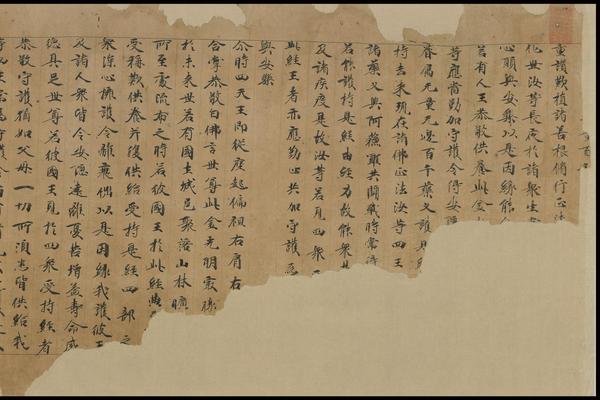 重讚歎植諸善根修行正法
化世汝等長夜於諸眾生
心願與安樂以是因緣能
若有人王恭敬供養此金
等應當勤加守護令得安
眷屬無量無邊百千藥叉護是
持去來現在諸佛正法汝等四王
諸藥叉與阿蘇羅共鬪戰時常得
若能護持是經由經力故能眾
及諸疾疫是故汝等若見四眾
此經王者亦應勤心共加守護
與安樂
尒時四天王即從座起偏袒右肩右
合掌恭敬白佛言世尊此金光明最勝
於未來世若有國土城邑聚落山林曠
所至處流布之時若彼國王於此經典
受稱歎供養并復供給受持是經四部之
眾深心擁護令離衰惱以是因緣我護彼王
及諸人眾皆令安隱遠離憂苦增益壽命威
德具足世尊若彼國王見於四眾受持經者
恭敬守護猶如父母一切所須悉皆供給我